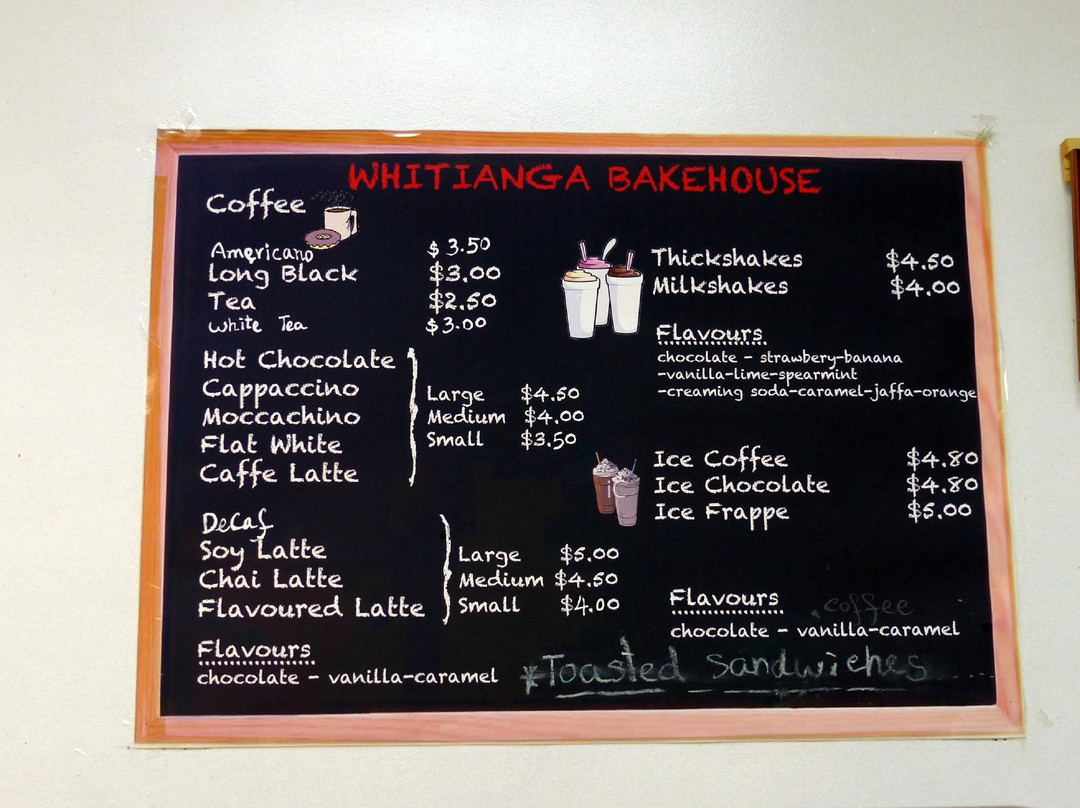 WHITIANGA BAKEHOUSE
Coffee
Americano $3.50
Long Black $3.00
Tea $2.50
White Tea $3.00
Hot Chocolate
Cappaccino
Moccachino
Flat White
Caffe Latte
Large $4.50
Medium $4.00
Small $3.50
Decaf
Soy Latte
Chai Latte
Flavoured Latte
Large $5.00
Medium $4.50
Small $4.00
Flavours
chocolate - vanilla-caramel
Thickshakes $4.50
Milkshakes $4.00
Flavours
chocolate - strawbery-banana
-vanilla-lime-spearmint
-creaming soda-caramel-jaffa-orange
Ice Coffee $4.80
Ice Chocolate $4.80
Ice Frappe $5.00
Flavours
coffee
chocolate - vanilla-caramel
*Toasted Sandwiches